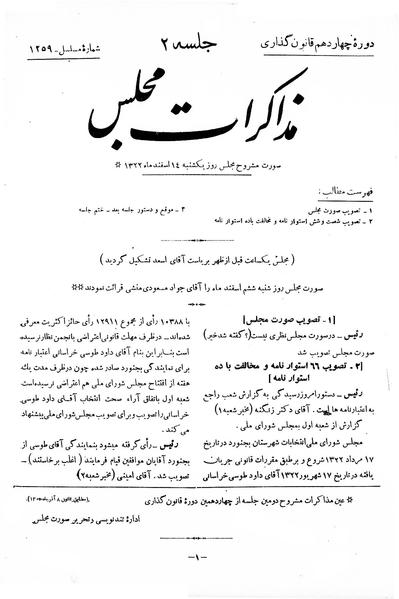 دورهٔ چهاردهم قانون‌گذاری
جلسه ۲
شمارهٔ مسلسل - ۱۲۵۹
مذاکرات مجلس
صورت مشروح مجلس روز یکشنبه ۱۴ اسفند ماه ۱۳۲۲ *
فهرست مطالب :
۱ - تصویب صورت مجلس
۲ - تصویب شصت و شش استوار نامه و مخالفت با ده استوار نامه
۳ - موقع و دستور جلسه بعد - ختم جلسه
( مجلس یکساعت قبل از ظهر بریاست آقای اسعد تشکیل گردید )
صورت مجلس روز شنبه ششم اسفند ماه را آقای جواد مسعودی منشی قرائت نمودند **
[۱ - تصویب صورت مجلس]
رئیس - درصورت مجلس نظری نیست؟ ( گفته شد خیر )
صورت مجلس تصویب شد
[۲ - تصویب ۶۶ استوار نامه و مخالفت با ده
استوار نامه]
رئیس - دستور امروز رسیدگی به گزارش شعب راجع
به اعتبارنامه ها است. آقای دکتر زنگنه ( مخبر شعبه ۱ )
گزارش از شعبه اول بمجلس شورای ملی .
مجلس شورای ملی انتخابات شهرستان بجنورد در تاریخ
۱۷ مرداد ۱۳۲۲ شروع و بر طبق مقررات قانونی جریان
یافته در تاریخ ۱۷ شهریور ۱۳۲۲ آقای داود طوسی خراسانی
با ۱۰۳۸۸ رأی از مجموع ۱۲۹۱۱ رأی حائز اکثریت معرفی
شده‌اند - در ظرف مهلت قانونی اعتراضی بانجمن نظار نرسیده
است بنابر این بنام آقای داود طوسی خراسانی اعتبار نامه
برای نمایندگی بجنورد صادر شده چون در ظرف مدت یک
هفته از افتتاح مجلس شورای ملی هم اعتراضی نرسیده است
شعبه اول باتفاق آراء صحت انتخاب آقای داود طوسی
خراسانی را تصویب و برای تصویب مجلس شورای ملی پیشنهاد
می کند.
رئیس - رأی گرفته میشود بنمایندگی آقای طوسی از
بجنورد آقایان موافقین قیام فرمایند ( اغلب برخاستند ) -
تصویب شد . آقای امینی ( مخبر شعبه ۲ )
* عین مذاکرات مشروح دومین جلسه از چهاردهمین دورهٔ قانون گذاری
ادارهٔ تندنویسی و تحریر صورت مجلس
- ۱ -